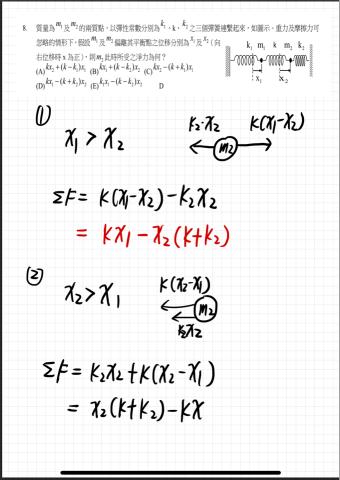 8. 質量為m₁及m₂的兩質點，以彈性常數分別為k₁、k、k₂之三個彈簧連繫起來，如圖示。重力及摩擦力可
忽略的情形下，假設m₁及m₂偏離其平衡點之位移分別為x₁及x₂（向
右位移時 x 為正），則m₂此時所受之淨力為何？
(A) kx₂+(k−k₁)x₁ (B) kx₁+(k−k₂)x₂ (C) kx₂−(k+k₁)x₁
(D) kx₁−(k+k₂)x₂ (E) k₁x₁−(k−k₂)x₂ D
k₁ m₁ k m₂ k₂
x₁ x₂
(1)
x₁ > x₂
k₂·x₂ k(x₁-x₂)
m₂
ΣF = k(x₁-x₂) - k₂x₂
= kx₁ - x₂(k+k₂)
(2)
x₂ > x₁
k(x₂-x₁)
m₂
k₂x₂
ΣF = k₂x₂ + k(x₂-x₁)
= x₂(k+k₂) - kx